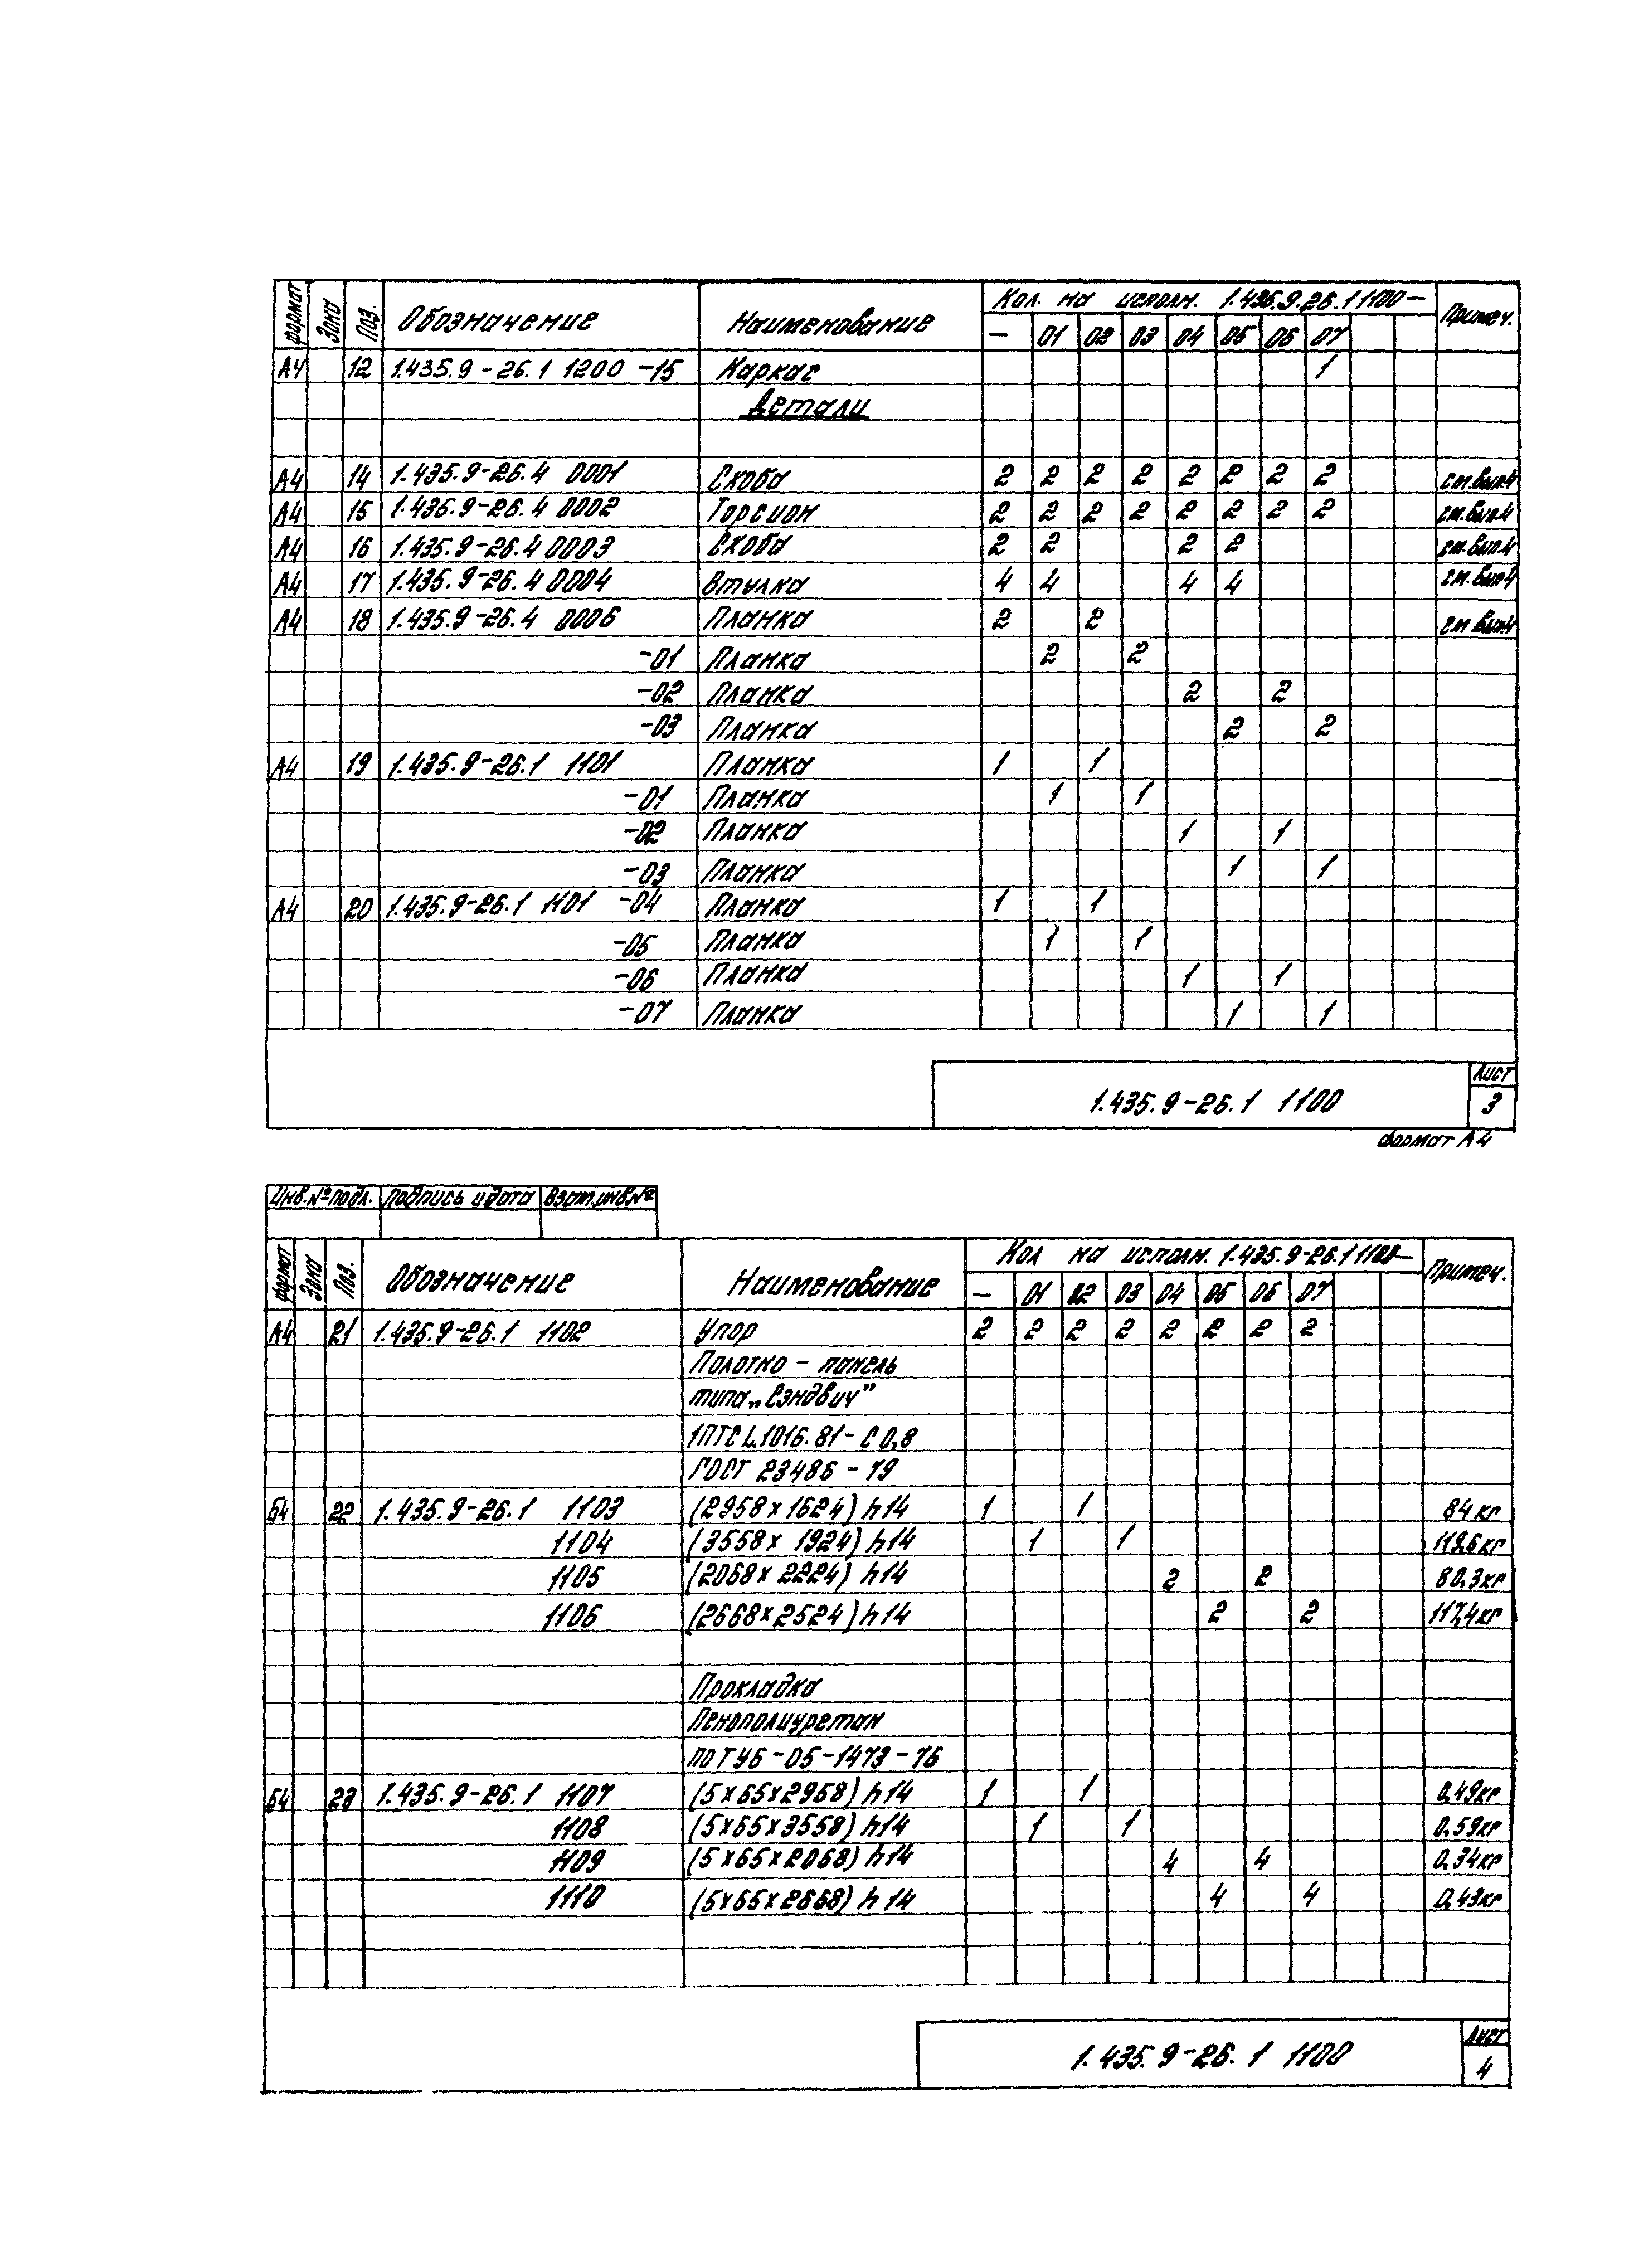 формат Зона Поз. Обозначение Наименование Кол. на исполн. 1.435.9-26.1 1100— Примеч.
— 01 02 03 04 05 06 07
А4 12 1.435.9-26.1 1200 -15 Каркас 1
Детали
А4 14 1.435.9-26.4 0001 Скоба 2 2 2 2 2 2 2 2 см.вып.4
А4 15 1.435.9-26.4 0002 Торсион 2 2 2 2 2 2 2 2 см.вып.4
А4 16 1.435.9-26.4 0003 Скоба 2 2 2 2 см.вып.4
А4 17 1.435.9-26.4 0004 Втулка 4 4 4 4 см.вып.4
А4 18 1.435.9-26.4 0006 Планка 2 2 см вып.4
-01 Планка 2 2
-02 Планка 2 2
-03 Планка 2 2
А4 19 1.435.9-26.1 1101 Планка 1 1
-01 Планка 1 1
-02 Планка 1 1
-03 Планка 1 1
А4 20 1.435.9-26.1 1101 -04 Планка 1 1
-05 Планка 1 1
-06 Планка 1 1
-07 Планка 1 1
1.435.9-26.1 1100 Лист
3
формат А4
Инв.№подл. Подпись и дата Взам.инв.№
формат Зона Поз. Обозначение Наименование Кол на исполн. 1.435.9-26.1 1100— Примеч.
— 01 02 03 04 05 06 07
А4 21 1.435.9-26.1 1102 Упор 2 2 2 2 2 2 2 2
Полотно - панель
типа „Сэндвич"
1ПТС 1.1016.81-С 0,8
ГОСТ 23486-79
Б4 22 1.435.9-26.1 1103 (2958×1624) h14 1 1 84 кг
1104 (3558× 1924) h14 1 1 119,6кг
1105 (2068× 2224) h14 2 2 80,3кг
1106 (2668×2524) h14 2 2 117,4кг
Прокладка
Пенополиуретан
по ТУ6-05-1473-76
Б4 23 1.435.9-26.1 1107 (5×65×2958) h14 1 1 0,49кг
1108 (5×65×3558) h14 1 1 0,59кг
1109 (5×65×2068) h14 4 4 0,34кг
1110 (5×65×2668) h 14 4 4 0,43кг
1.435.9-26.1 1100 Лист
4